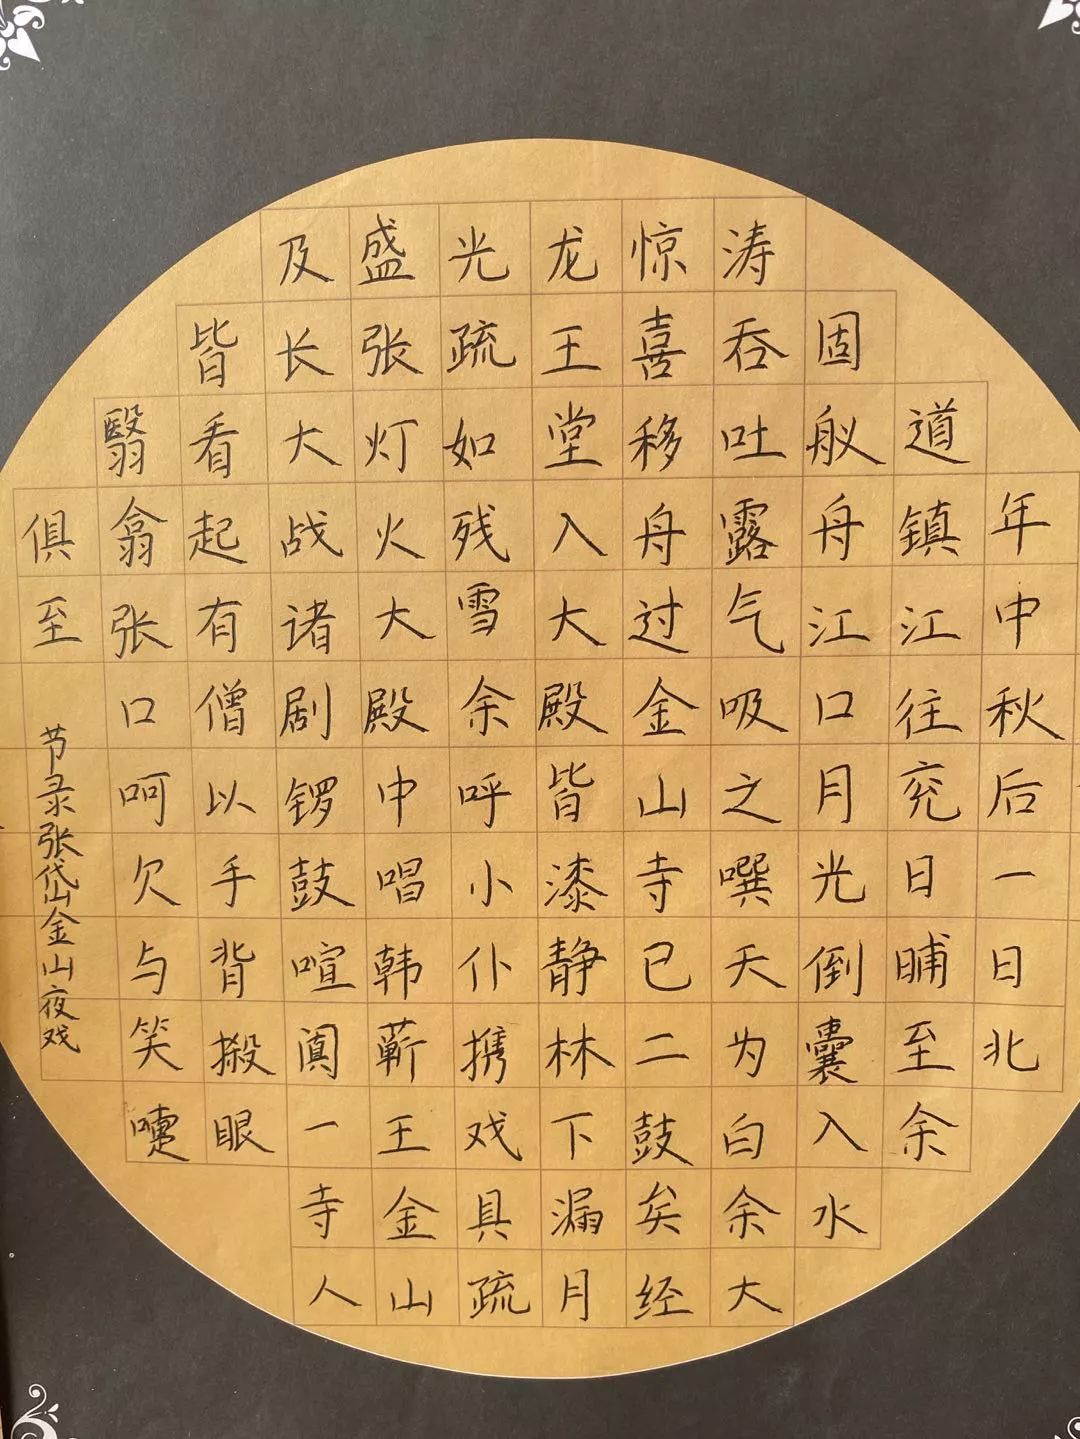 年中秋后一日北
道镇江往兖日晡至余
固舣舟江口月光倒囊入水
涛吞吐露气吸之噀天为白余大
惊喜移舟过金山寺已二鼓矣经
龙王堂入大殿皆漆静林下漏月
光疏如残雪余呼小仆携戏具疏
盛张灯火大殿中唱韩蕲王金山
及长大战诸剧锣鼓喧阗一寺人
皆看起有僧以手背摋眼
翳翕张口呵欠与笑嚏
俱至
节录张岱金山夜戏